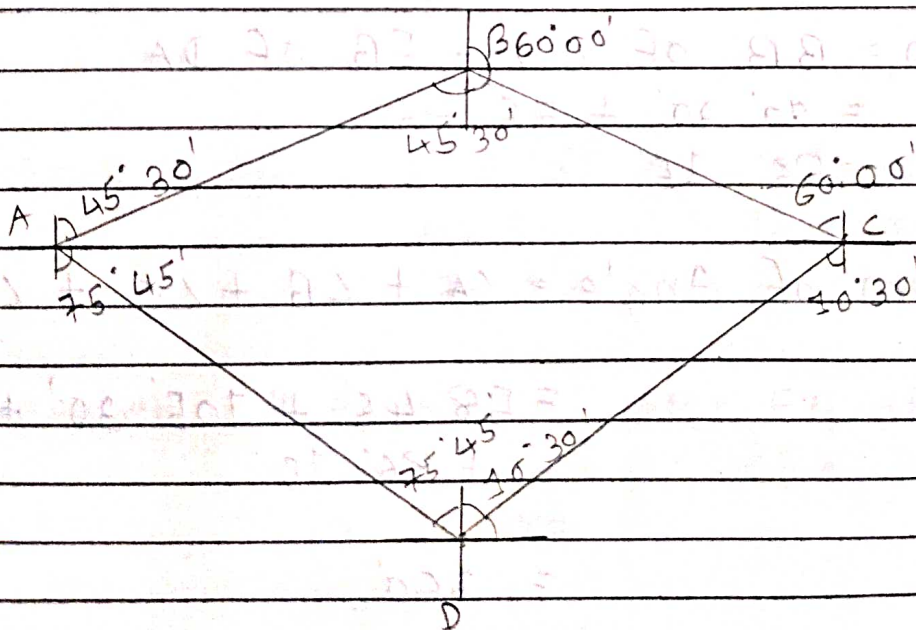 B 60°00'
45°30'
A 45°30'
60°00'
C
75°45'
10°30'
75°45' 10°30'
D